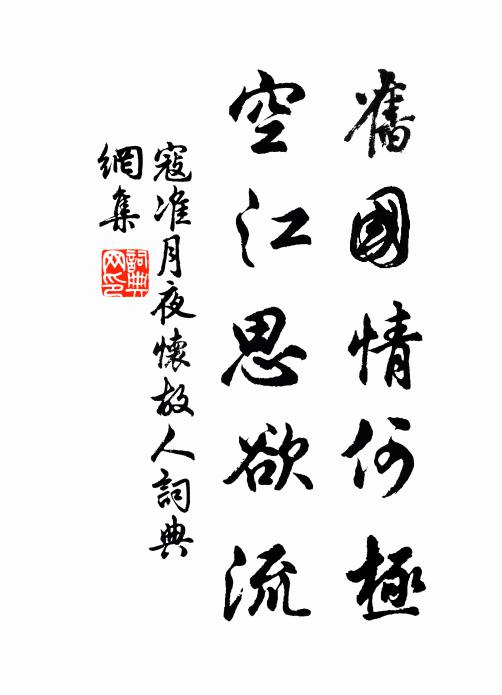 舊國情何極
空江思欲流
寇准月夜懷故人詞典
網集
詞典
网印